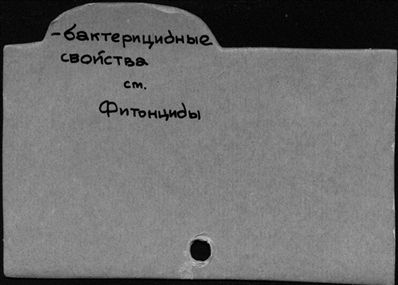 -бактерицидные
свойства
ст.
Фитонциды